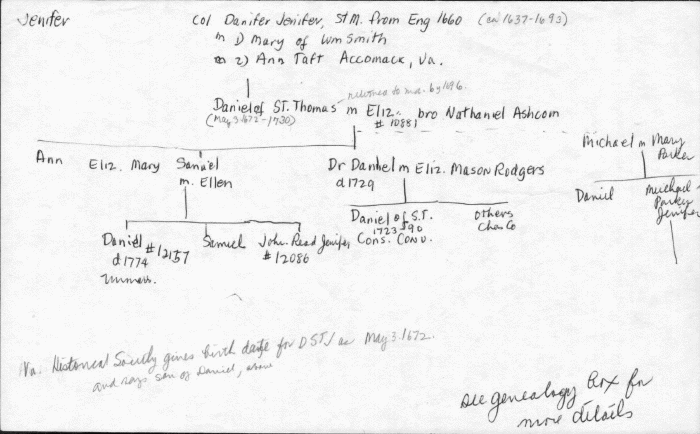 Jenifer
Col Danifer Jenifer, St M. from Eng 1660 (ca 1637-1693)
m 1) Mary of Wm Smith
m 2) Ann Taft Accomack, Va.
returned to md. by 1696.
Daniel of ST. Thomas m Eliz. bro Nathaniel Ashcom
(May 3 1672-1730) #10881
Michael m Mary Parker
Ann Eliz. Mary Samuel m. Ellen
Dr Daniel m Eliz. Mason Rodgers
d1729
Daniel Michael Parker Jenifer
Daniel of S.T. 1723-90 Cons. Conv.
Others Chas Co
Daniel #12157 d1774 unmar.
Samuel
John Read Jenifer #12086
Va. Historical Society gives birth date for DSTJ as May 3. 1672.
and says son of Daniel, above
See genealogy box for
more details